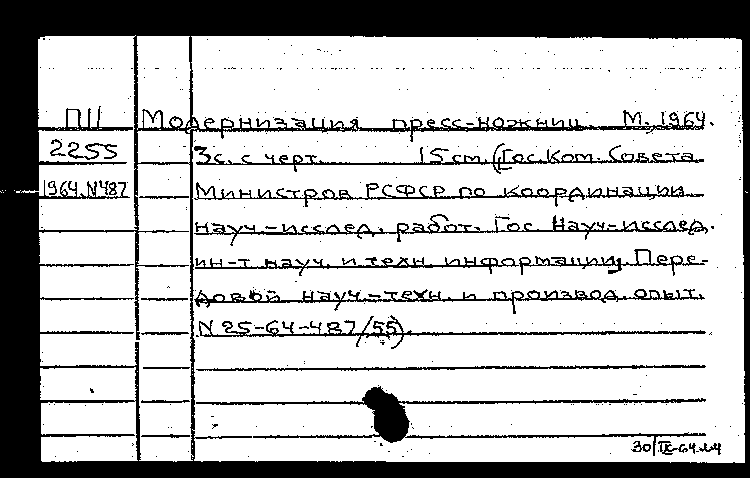 П11 Модернизация пресс-ножниц М. 1964.
2255 3с. с черт. 15 см. (Гос. Ком. Совета
1964. N487 Министров РСФСР по координации
науч.-исслед. работ. Гос. Науч-исслед.
ин-т науч. и техн. информации. Пере-
довой науч.-техн. и производ. опыт.
N 25-64-487/55).
30/IX-64